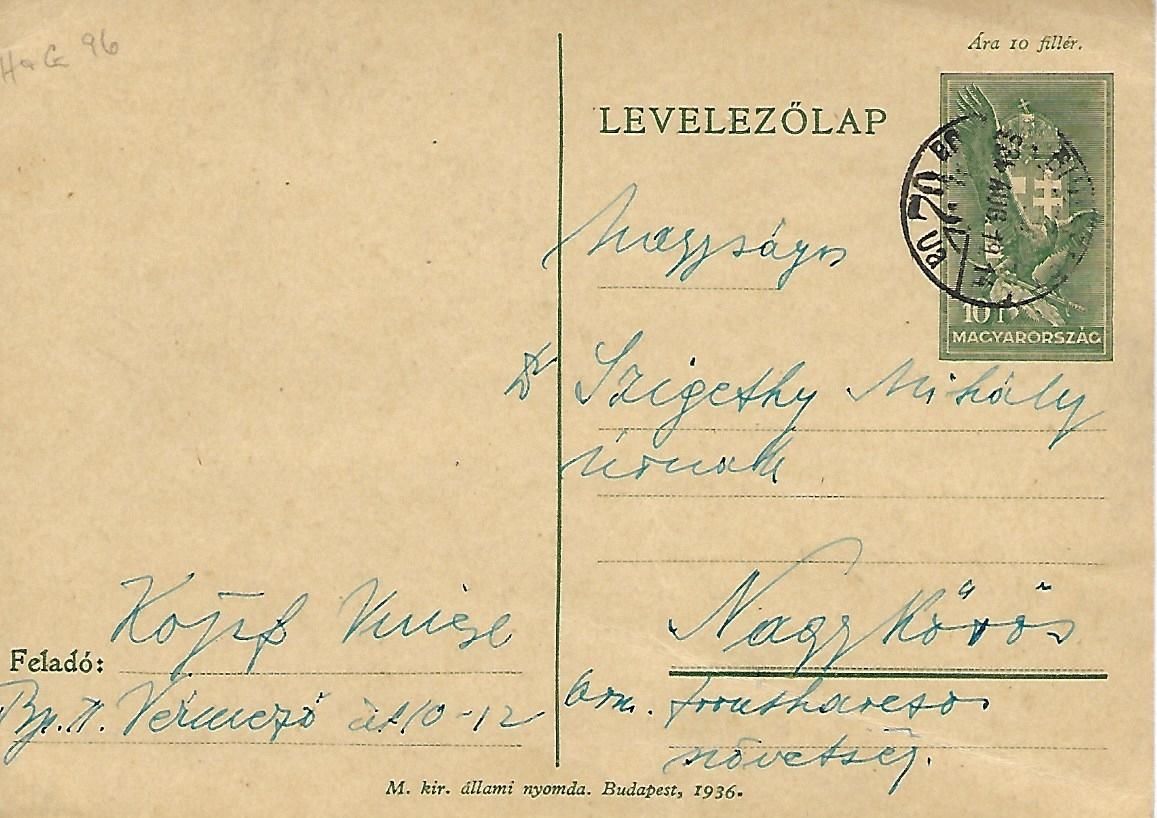 H & G 96
Ára 10 fillér.
LEVELEZŐLAP
70
AUG. 19
10 f
MAGYARORSZÁG
Nagyságos
Dr Szigethy Mihály
Úrnak
Nagykőrös
Orsz. frontharcos
szövetség.
Feladó:
Bp. II. Vérmező út 10-12
M. kir. állami nyomda. Budapest, 1936.